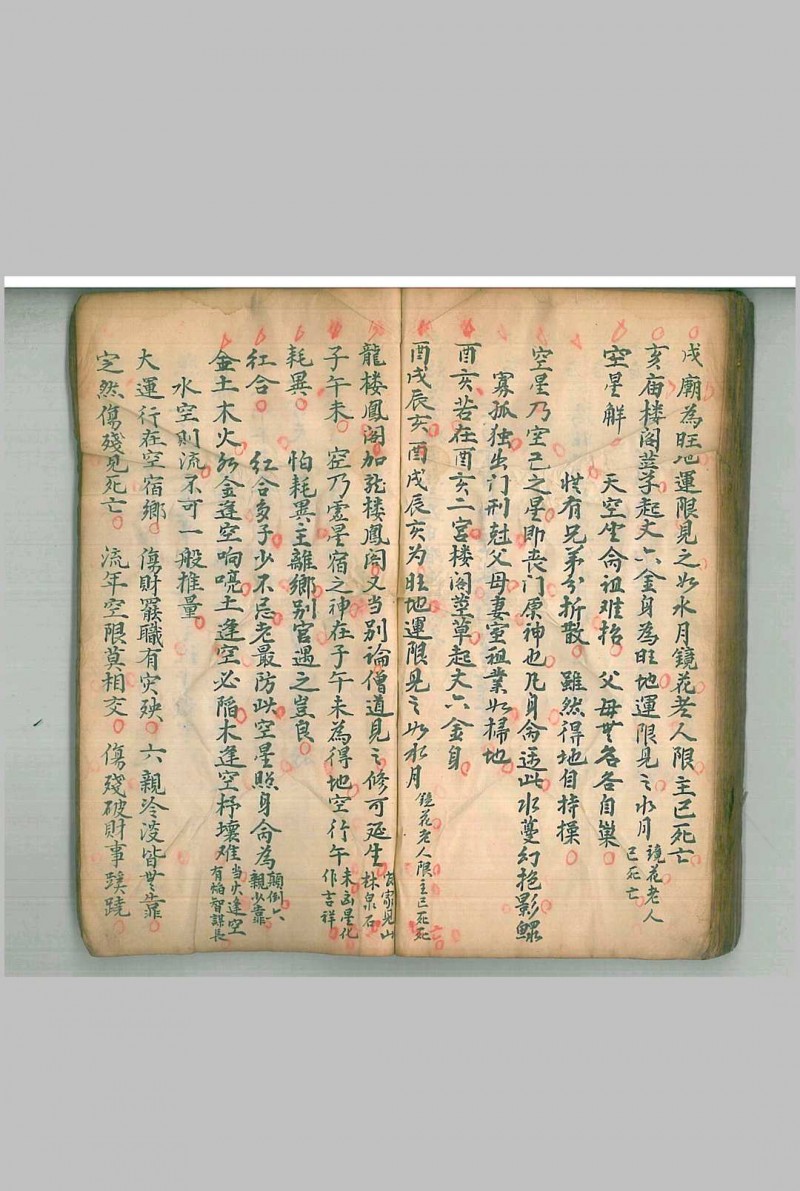 戌廟為旺地運限見之如水月鏡花老人限主已死亡
亥庙楼阁莖草起丈六金身為旺地運限見之水月鏡花老人已死亡
空星解　天空坐命祖难招　父母無名各自巢
惟有兄弟分折散　雖然得地自持操
空星乃空己之星即丧门原神也凡身命逢此水蔓幻抱影鰥
寡孤独出门刑尅父母妻室祖業如掃地
酉亥若在酉亥二宮楼阁莖草起丈六金身
酉戌辰亥酉戌辰亥为旺地運限見之如水月鏡花老人限主已死
龍楼鳳阁加龍楼鳳阁又当别論僧道見之修可延生家見山林泉石
子午未　空乃虚星宿之神在子午未為得地空行午未凶星化作吉祥
耗異　怕耗異主離鄉别宦遇之豈良
红合　红合多子少不忌老最防此空星照身命為顛倒六親少靠
金土木火如金逢空响喨土逢空必陷木逢空杇壞难当火逢空有焔智謀長
水空则流不可一般推量
大運行在空宿鄉　傷财罷職有灾殃　六親冷淡皆無靠
定然傷殘見死亡　流年空限莫相交　傷殘破财事蹊蹺